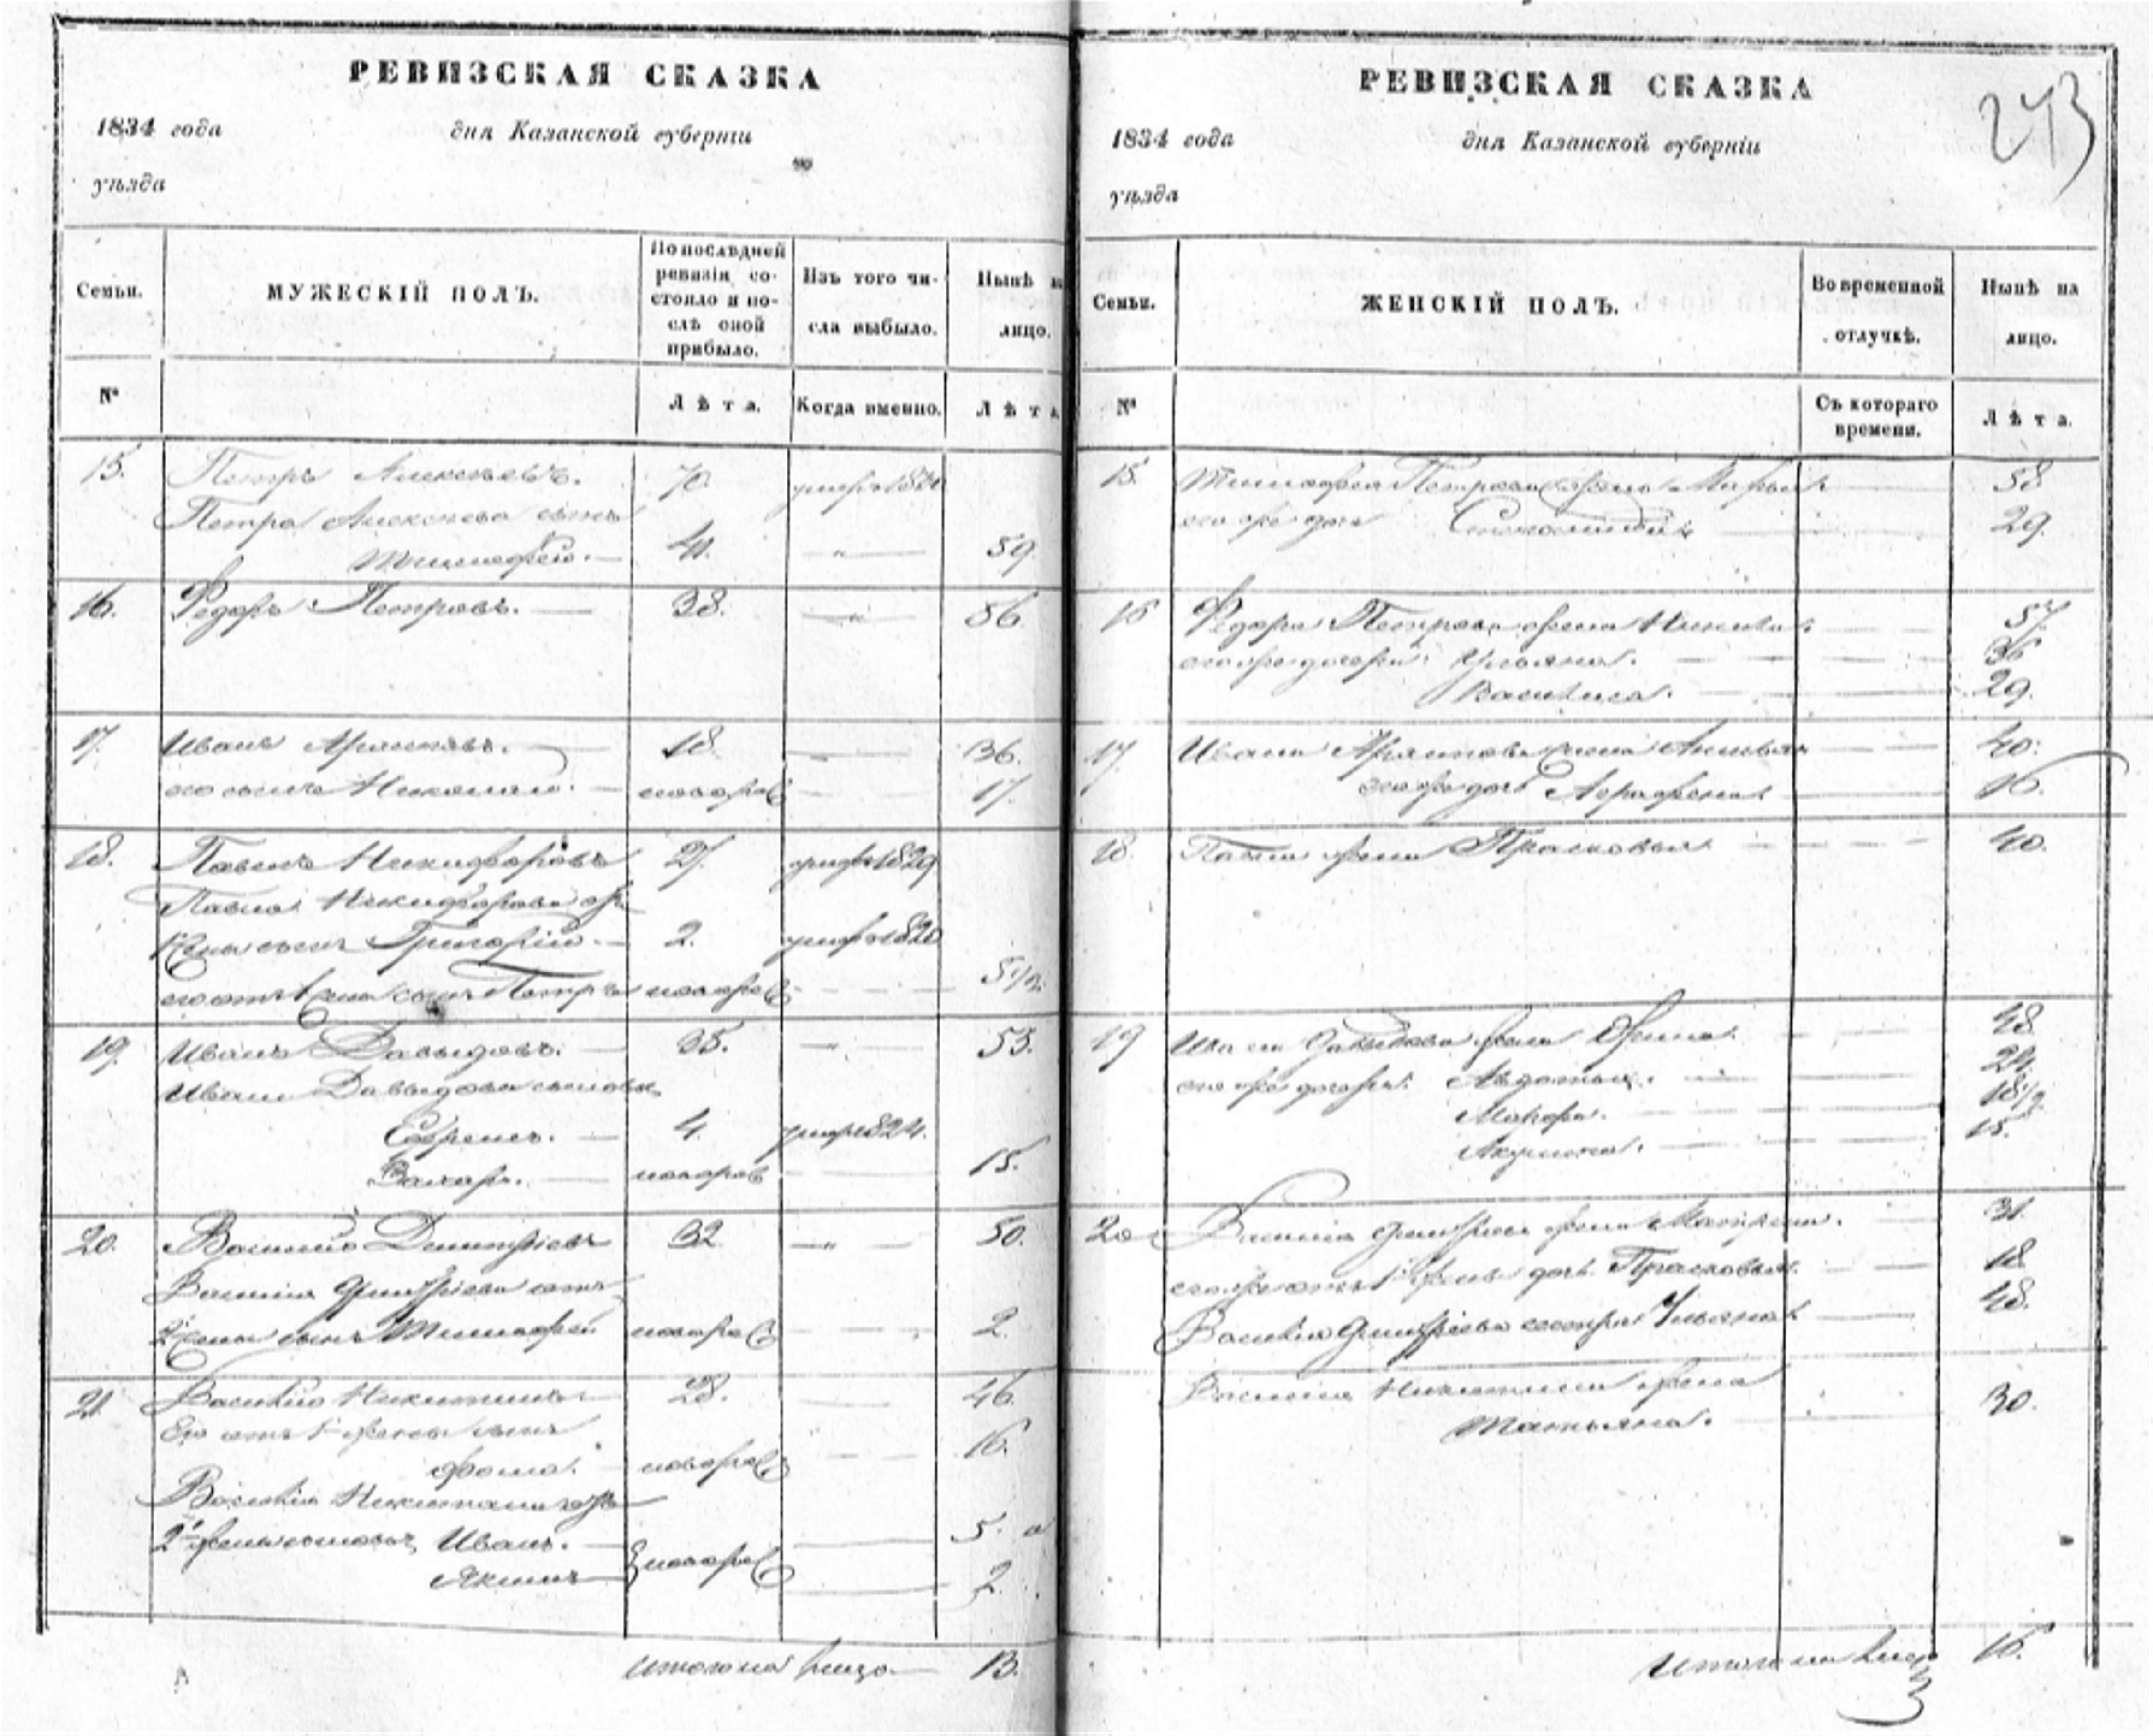 РЕВИЗСКАЯ СКАЗКА
1834 года
дня Казанской губерніи
уѣзда
Семьи.
МУЖЕСКІЙ ПОЛЪ.
По послѣдней ревизіи со-
стояло и по-
слѣ оной
прибыло.
Изъ того чи-
сла выбыло.
Нынѣ
лицо.
№
Лѣта.
Когда именно.
Лѣта
15. Петръ Алексѣевъ. 70.
Петра Алексѣева сынъ
Тимофей. 41. 59.
16. Федоръ Петровъ. 38. 56.
17. Иванъ 18. 36.
его сынъ Николай. новорож 17.
18. Павелъ Никифоровъ 27. умер 1829
Павла Никифорова
жены сынъ Григорій. 2. умер
сынъ Петръ новорож 5 1/2
19. Иванъ Давыдовъ. 35. 53.
Ивана Давыдова сыновья
Ефремъ. 4. умер 1824.
Захаръ. новорож 15.
20. Василій Дмитріевъ 32 50.
Василія Дмитріева отъ
2й жены сынъ Тимофей новорож 2
21 Василій Никитинъ 28. 46.
Его отъ 1й жены сынъ 16.
Фома. новорож
Василія Никитина отъ
2й жены сыновья Иванъ. 5.
Якимъ новорож 2.
Итого на лицо 13.
РЕВИЗСКАЯ СКАЗКА
273
1834 года
дня Казанской губерніи
уѣзда
Семьи.
ЖЕНСКІЙ ПОЛЪ.
Во временной
отлучкѣ.
Нынѣ на
лицо.
№
Съ котораго
времени.
Лѣта.
15. Тимофея Петрова жена Марья 58
его же дочь 29.
16 Федора Петрова жена 57.
его же дочери Ульяна. 36
Василиса. 29.
17. Ивана жена 40.
его же дочь Аграфена 16.
18. Павла жена Прасковья 40.
19 Ивана Давыдова жена Арина. 48
его же дочери Авдотья. 24.
Мавра. 18 1/2
Акулина. 15.
20 Василія Дмитріева жена Матрена. 31.
его же отъ 1й жены дочь Прасковья. 18
Василія Дмитріева сестра Ульяна 48.
Василія Никитина жена
Татьяна. 30.
Итого на лицо 16.